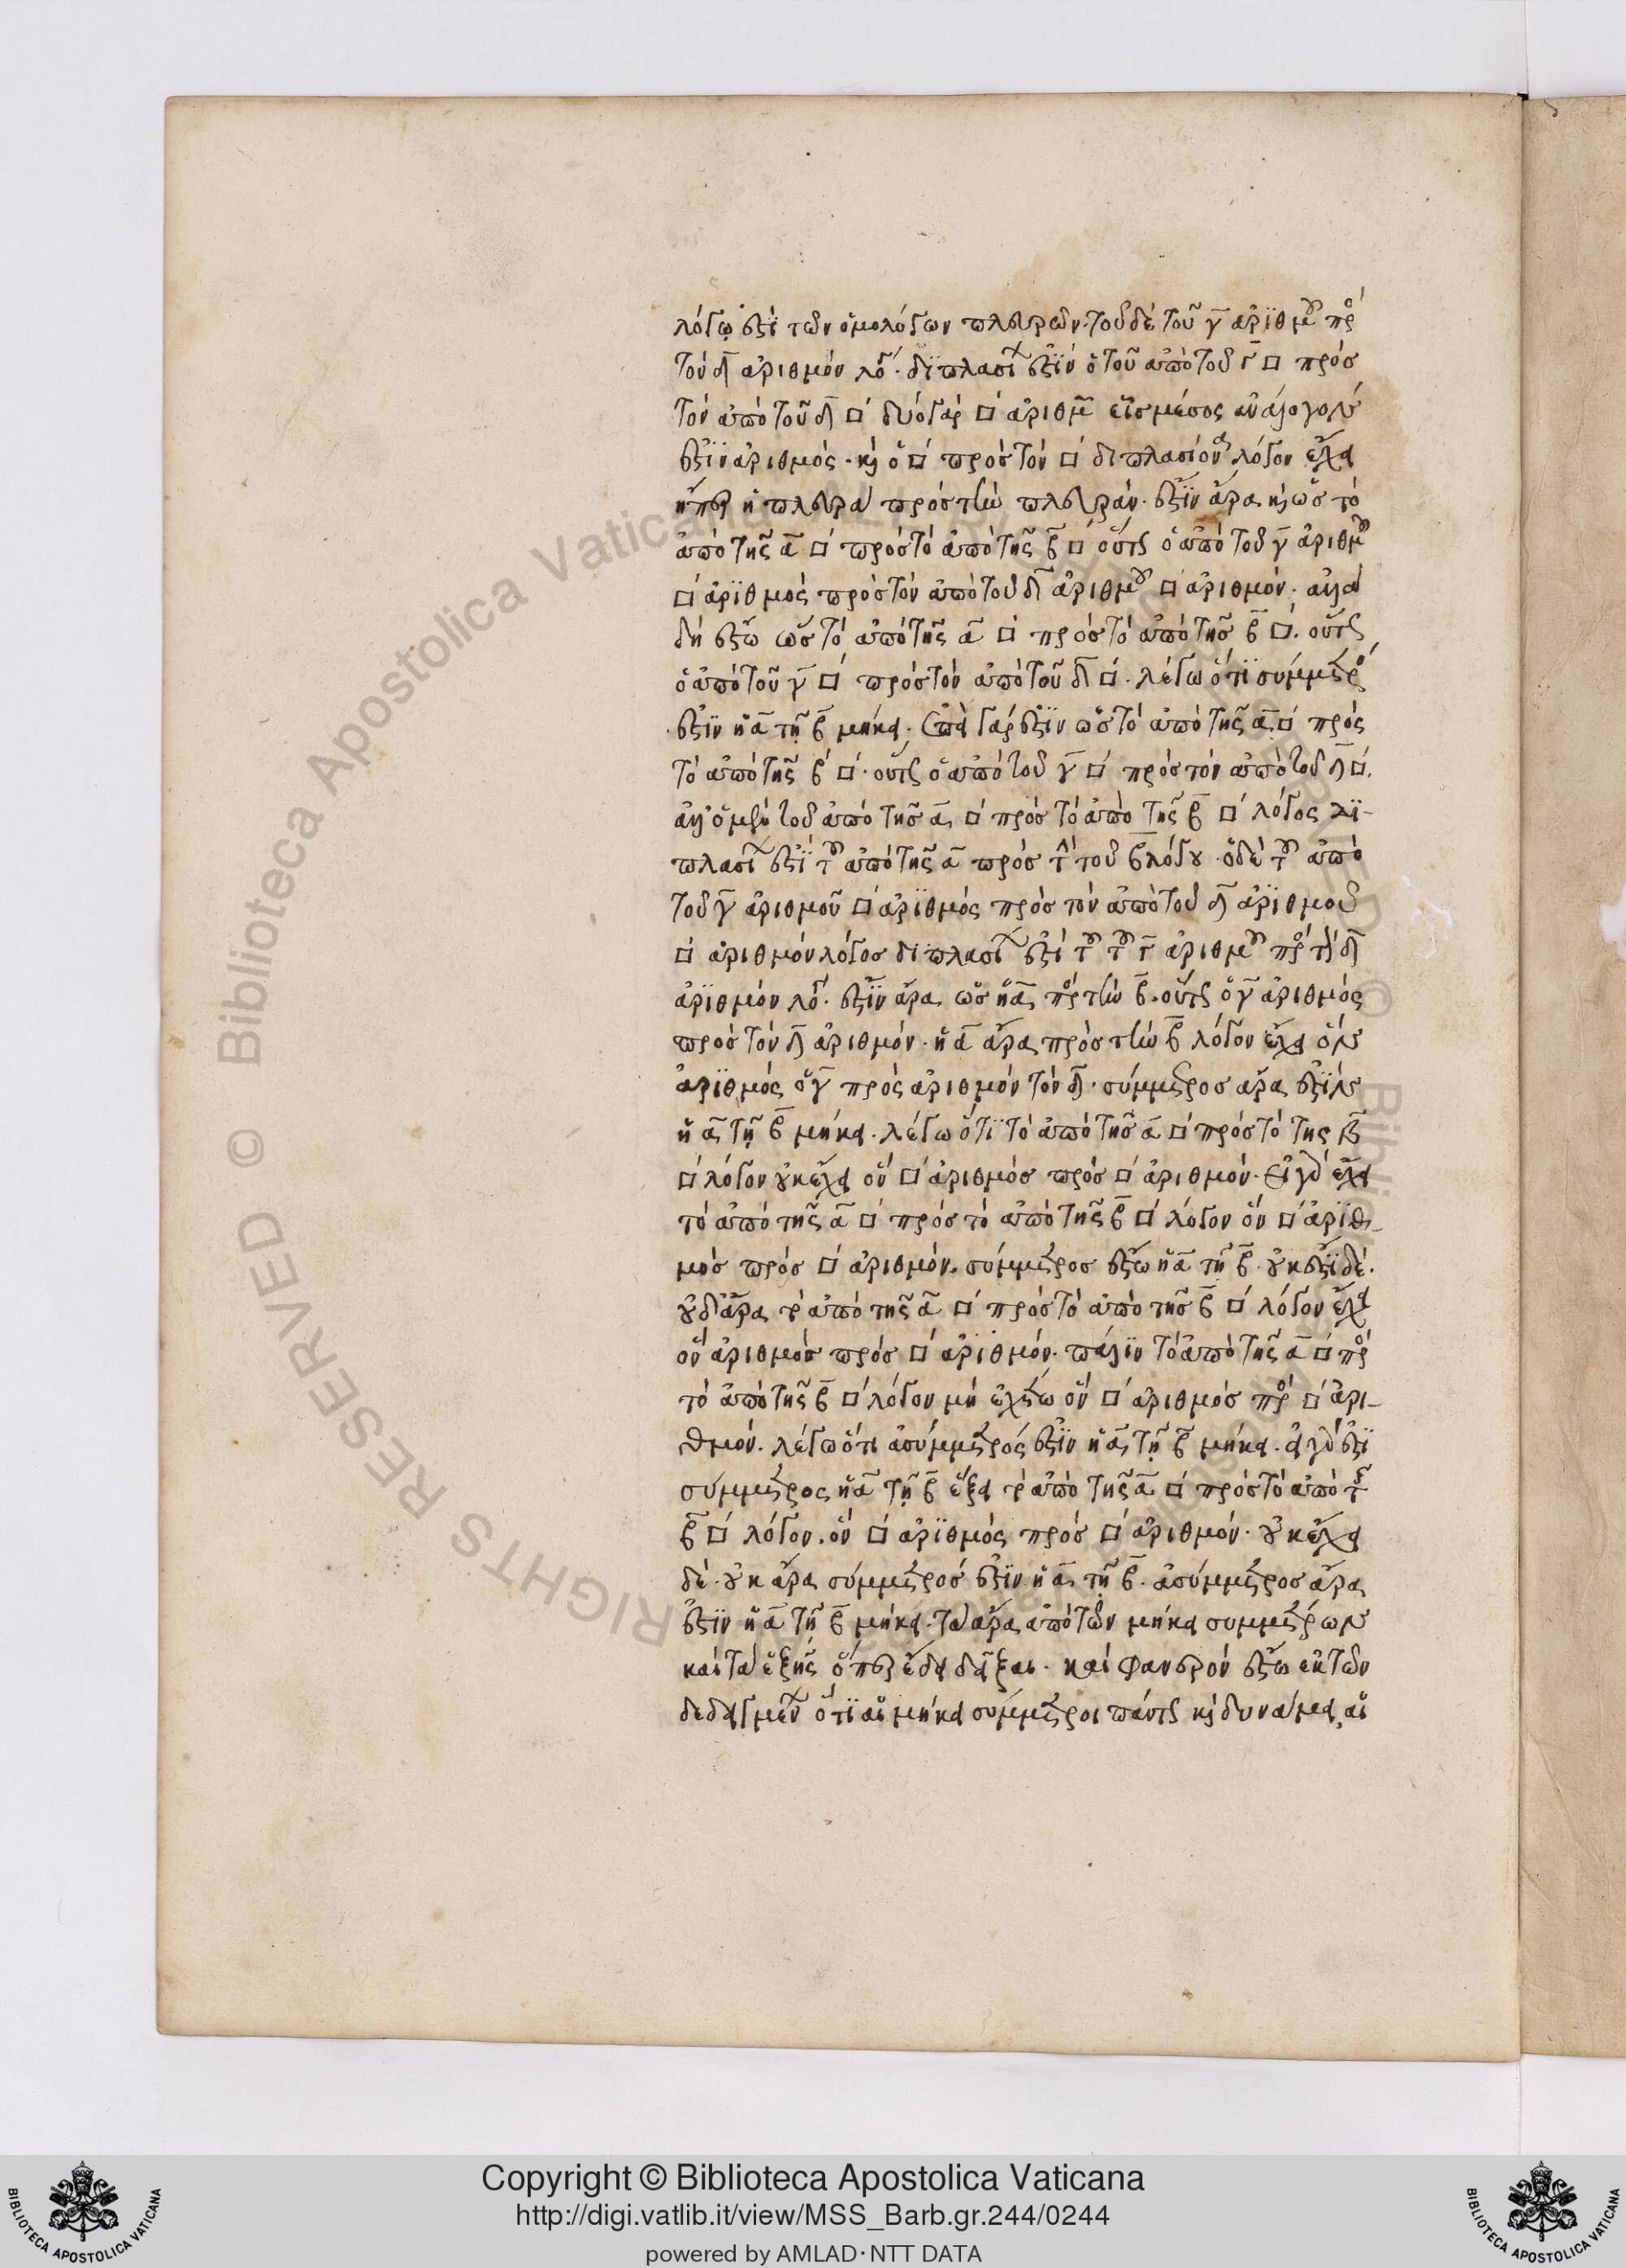 λόγῳ ἐστὶ τῶν ὁμολόγων πλευρῶν· τοῦ δὲ τοῦ γ̄ ἀριθμοῦ πρὸς
τὸν δ̄ ἀριθμὸν λόγου· διπλασίων ἐστὶν ὁ τοῦ ἀπὸ τοῦ γ̄ □ πρὸς
τὸν ἀπὸ τοῦ δ̄ □ δύο γὰρ □ ἀριθμῶν εἷς μέσος ἀνάλογον
ἐστὶν ἀριθμός· καὶ ὁ □ πρὸς τὸν □ διπλασίονα λόγον ἔχει
ἤπερ ἡ πλευρὰ πρὸς τὴν πλευράν· ἔστιν ἄρα καὶ ὡς τὸ
ἀπὸ τῆς ᾱ □ πρὸς τὸ ἀπὸ τῆς β̄ □ οὕτως ὁ ἀπὸ τοῦ γ̄ ἀριθμοῦ
□ ἀριθμὸς πρὸς τὸν ἀπὸ τοῦ δ̄ ἀριθμοῦ □ ἀριθμόν· ἀλλὰ
δὴ ἔστω ὡς τὸ ἀπὸ τῆς ᾱ □ πρὸς τὸ ἀπὸ τῆς β̄ □. οὕτως
ὁ ἀπὸ τοῦ γ̄ □ πρὸς τὸν ἀπὸ τοῦ δ̄ □. λέγω ὅτι σύμμετρος
ἐστιν ἡ ᾱ τῇ β̄ μήκει. ἐπεὶ γάρ ἐστιν ὡς τὸ ἀπὸ τῆς ᾱ □ πρὸς
τὸ ἀπὸ τῆς β̄ □· οὕτως ὁ ἀπὸ τοῦ γ̄ □ πρὸς τὸν ἀπὸ τοῦ δ̄ □.
ἀλλ' ὁ μὲν τοῦ ἀπὸ τῆς ᾱ □ πρὸς τὸ ἀπὸ τῆς β̄ □ λόγος δι-
πλασίων ἐστὶ τοῦ ἀπὸ τῆς ᾱ πρὸς τὴν τοῦ β̄ λόγου· ὁ δὲ τοῦ ἀπὸ
τοῦ γ̄ ἀριθμοῦ □ ἀριθμὸς πρὸς τὸν ἀπὸ τοῦ δ̄ ἀριθμοῦ
□ ἀριθμὸν λόγος διπλασίων ἐστὶ τοῦ τοῦ γ̄ ἀριθμοῦ πρὸς τὸν δ̄
ἀριθμὸν λόγου. ἔστιν ἄρα ὡς ἡ ᾱ πρὸς τὴν β̄. οὕτως ὁ γ̄ ἀριθμὸς
πρὸς τὸν δ̄ ἀριθμόν· ἡ ᾱ ἄρα πρὸς τὴν β̄ λόγον ἔχει ὃν
ἀριθμὸς ὁ γ̄ πρὸς ἀριθμὸν τὸν δ̄· σύμμετρος ἄρα ἐστὶν
ἡ ᾱ τῇ β̄ μήκει. λέγω ὅτι τὸ ἀπὸ τῆς ᾱ □ πρὸς τὸ τῆς β̄
□ λόγον οὐκ ἔχει ὃν □ ἀριθμὸς πρὸς □ ἀριθμόν. εἰ γὰρ ἔχει
τὸ ἀπὸ τῆς ᾱ □ πρὸς τὸ ἀπὸ τῆς β̄ □ λόγον ὃν □ ἀριθ-
μὸς πρὸς □ ἀριθμόν. σύμμετρος ἔστω ἡ ᾱ τῇ β̄. οὐκ ἔστι δέ.
οὐδ' ἄρα τὸ ἀπὸ τῆς ᾱ □ πρὸς τὸ ἀπὸ τῆς β̄ □ λόγον ἔχει
ὃν ἀριθμὸς πρὸς □ ἀριθμόν. πάλιν τὸ ἀπὸ τῆς ᾱ □ πρὸς
τὸ ἀπὸ τῆς β̄ □ λόγον μὴ ἐχέτω ὃν □ ἀριθμὸς πρὸς □ ἀρι-
θμόν. λέγω ὅτι ἀσύμμετρός ἐστιν ἡ ᾱ τῇ β̄ μήκει. εἰ γὰρ ἐστι
σύμμετρος ἡ ᾱ τῇ β̄ ἕξει τὸ ἀπὸ τῆς ᾱ □ πρὸς τὸ ἀπὸ τῆς
β̄ □ λόγον. ὃν □ ἀριθμὸς πρὸς □ ἀριθμόν. οὐκ ἔχει
δέ. οὐκ ἄρα σύμμετρος ἐστιν ἡ ᾱ τῇ β̄. ἀσύμμετρος ἄρα
ἐστὶν ἡ ᾱ τῇ β̄ μήκει. τὰ ἄρα ἀπὸ τῶν μήκει συμμέτρων
καὶ τὰ ἑξῆς ὅπερ ἔδει δεῖξαι. καὶ φανερὸν ἔσται ἐκ τῶν
δεδειγμένων ὅτι αἱ μήκει σύμμετροι πάντως καὶ δυνάμει, αἱ
Copyright © Biblioteca Apostolica Vaticana
http://digi.vatlib.it/view/MSS_Barb.gr.244/0244
powered by AMLAD·NTT DATA